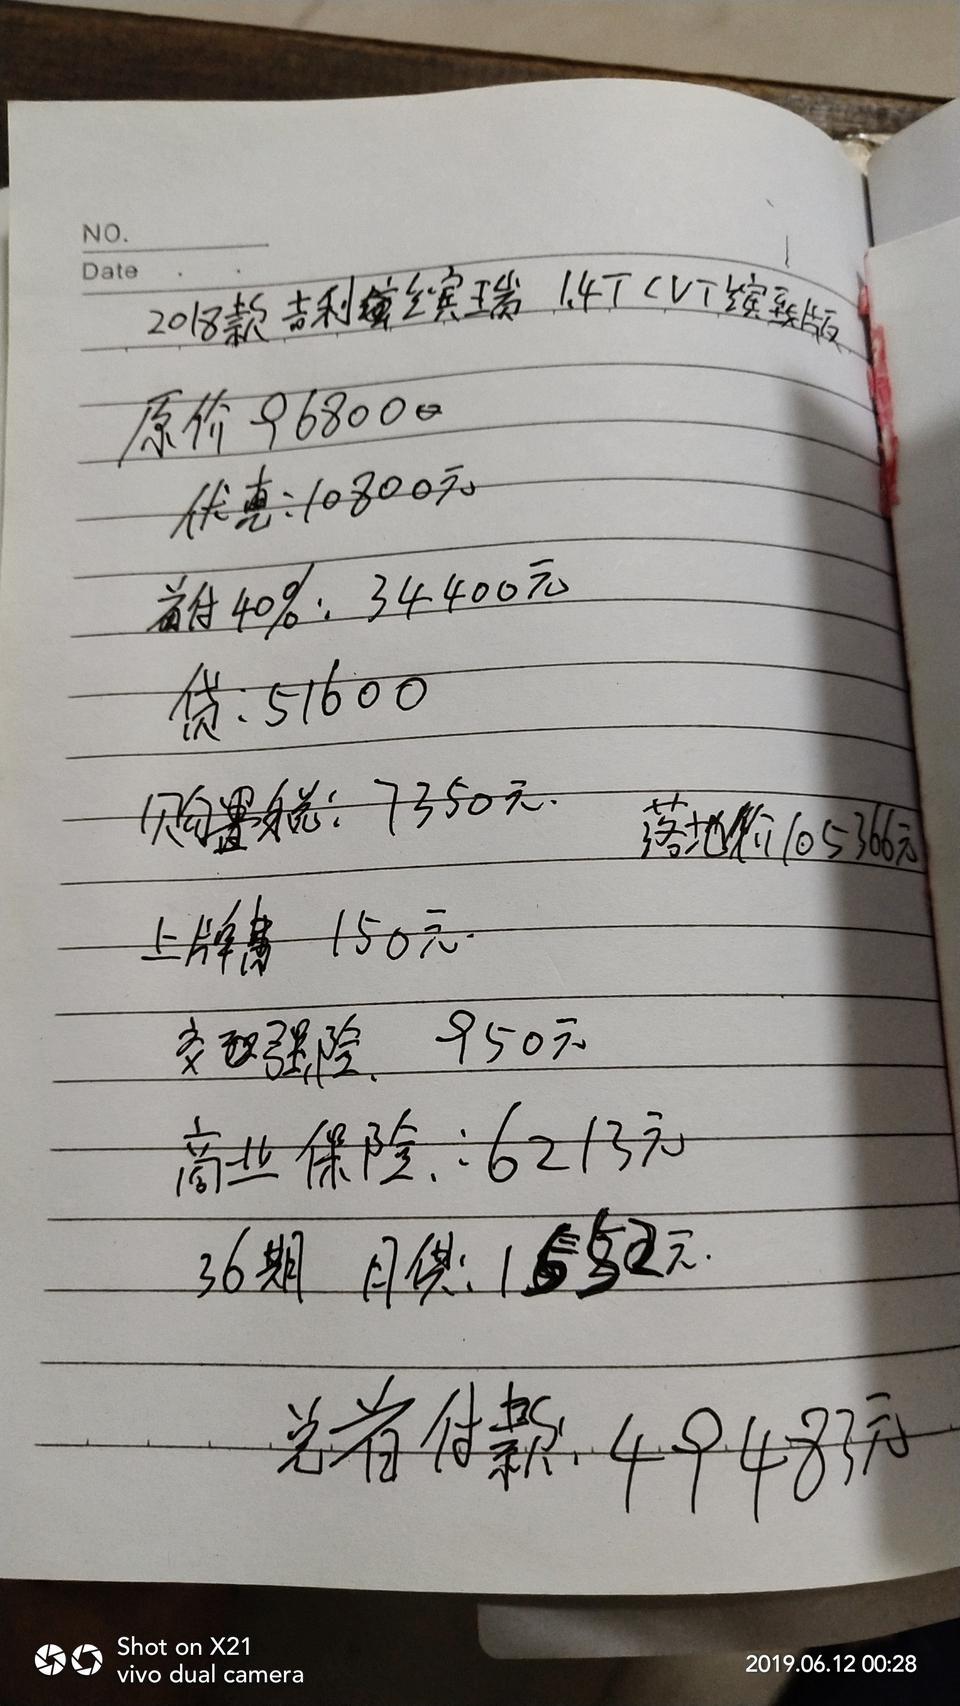 NO.
Date
2018款 吉利缤瑞 1.4T CVT缤致版
原价 96800
优惠:10800元
首付40%: 34400元
贷:51600
购置税: 7350元.
落地价105366元
上牌费 150元.
交强险. 950元
商业保险.:6213元
36期 月供:1552元.
总首付款. 49483元
Shot on X21
vivo dual camera
2019.06.12 00:28